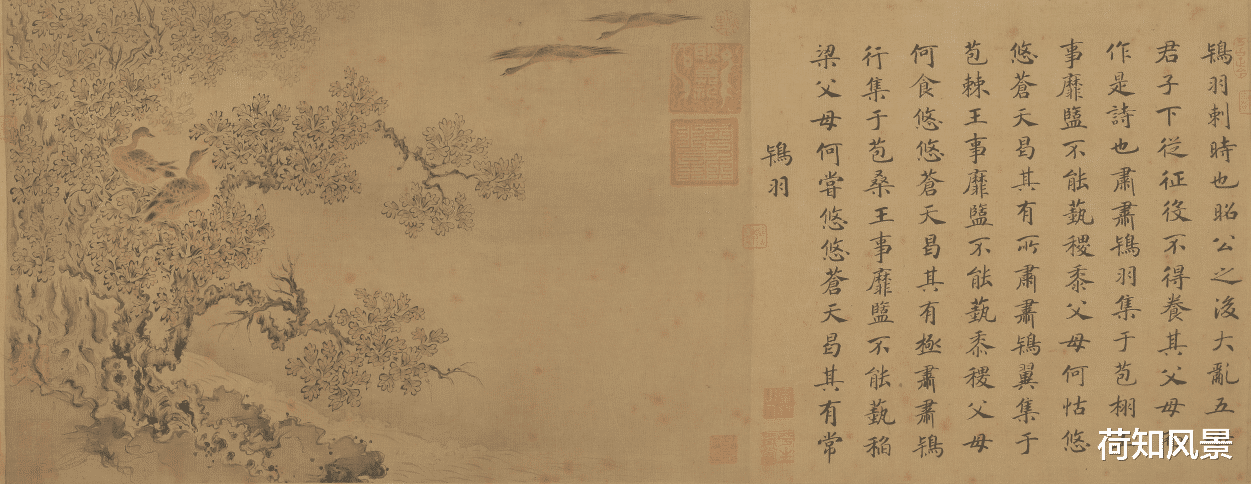 鴇羽刺時也昭公之後大亂五
君子下從征役不得養其父母
作是詩也肅肅鴇羽集于苞栩
事靡盬不能蓺稷黍父母何怙悠
悠蒼天曷其有所肅肅鴇翼集于
苞棘王事靡盬不能蓺黍稷父母
何食悠悠蒼天曷其有極肅肅鴇
行集于苞桑王事靡盬不能蓺稻
梁父母何嘗悠悠蒼天曷其有常
鴇羽
荷知风景